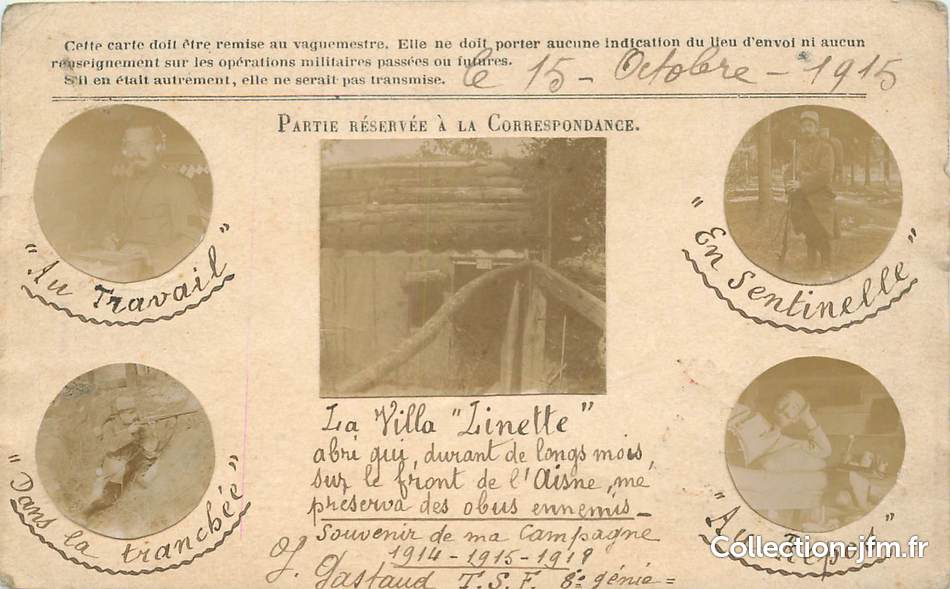 Cette carte doit être remise au vaguemestre. Elle ne doit porter aucune indication du lieu d'envoi ni aucun
renseignement sur les opérations militaires passées ou futures.
S'il en était autrement, elle ne serait pas transmise.
le 15 - Octobre - 1915
PARTIE RÉSERVÉE À LA CORRESPONDANCE.
"Au Travail"
"En Sentinelle"
La Villa "Linette"
abri qui, durant de longs mois,
sur le front de l'Aisne, me
préserva des obus ennemis -
Souvenir de ma Campagne
1914 - 1915 - 1919
J. Gastaud T.S.F. 8e génie =
"Dans la tranchée"
"Au Repos"
Collection-jfm.fr